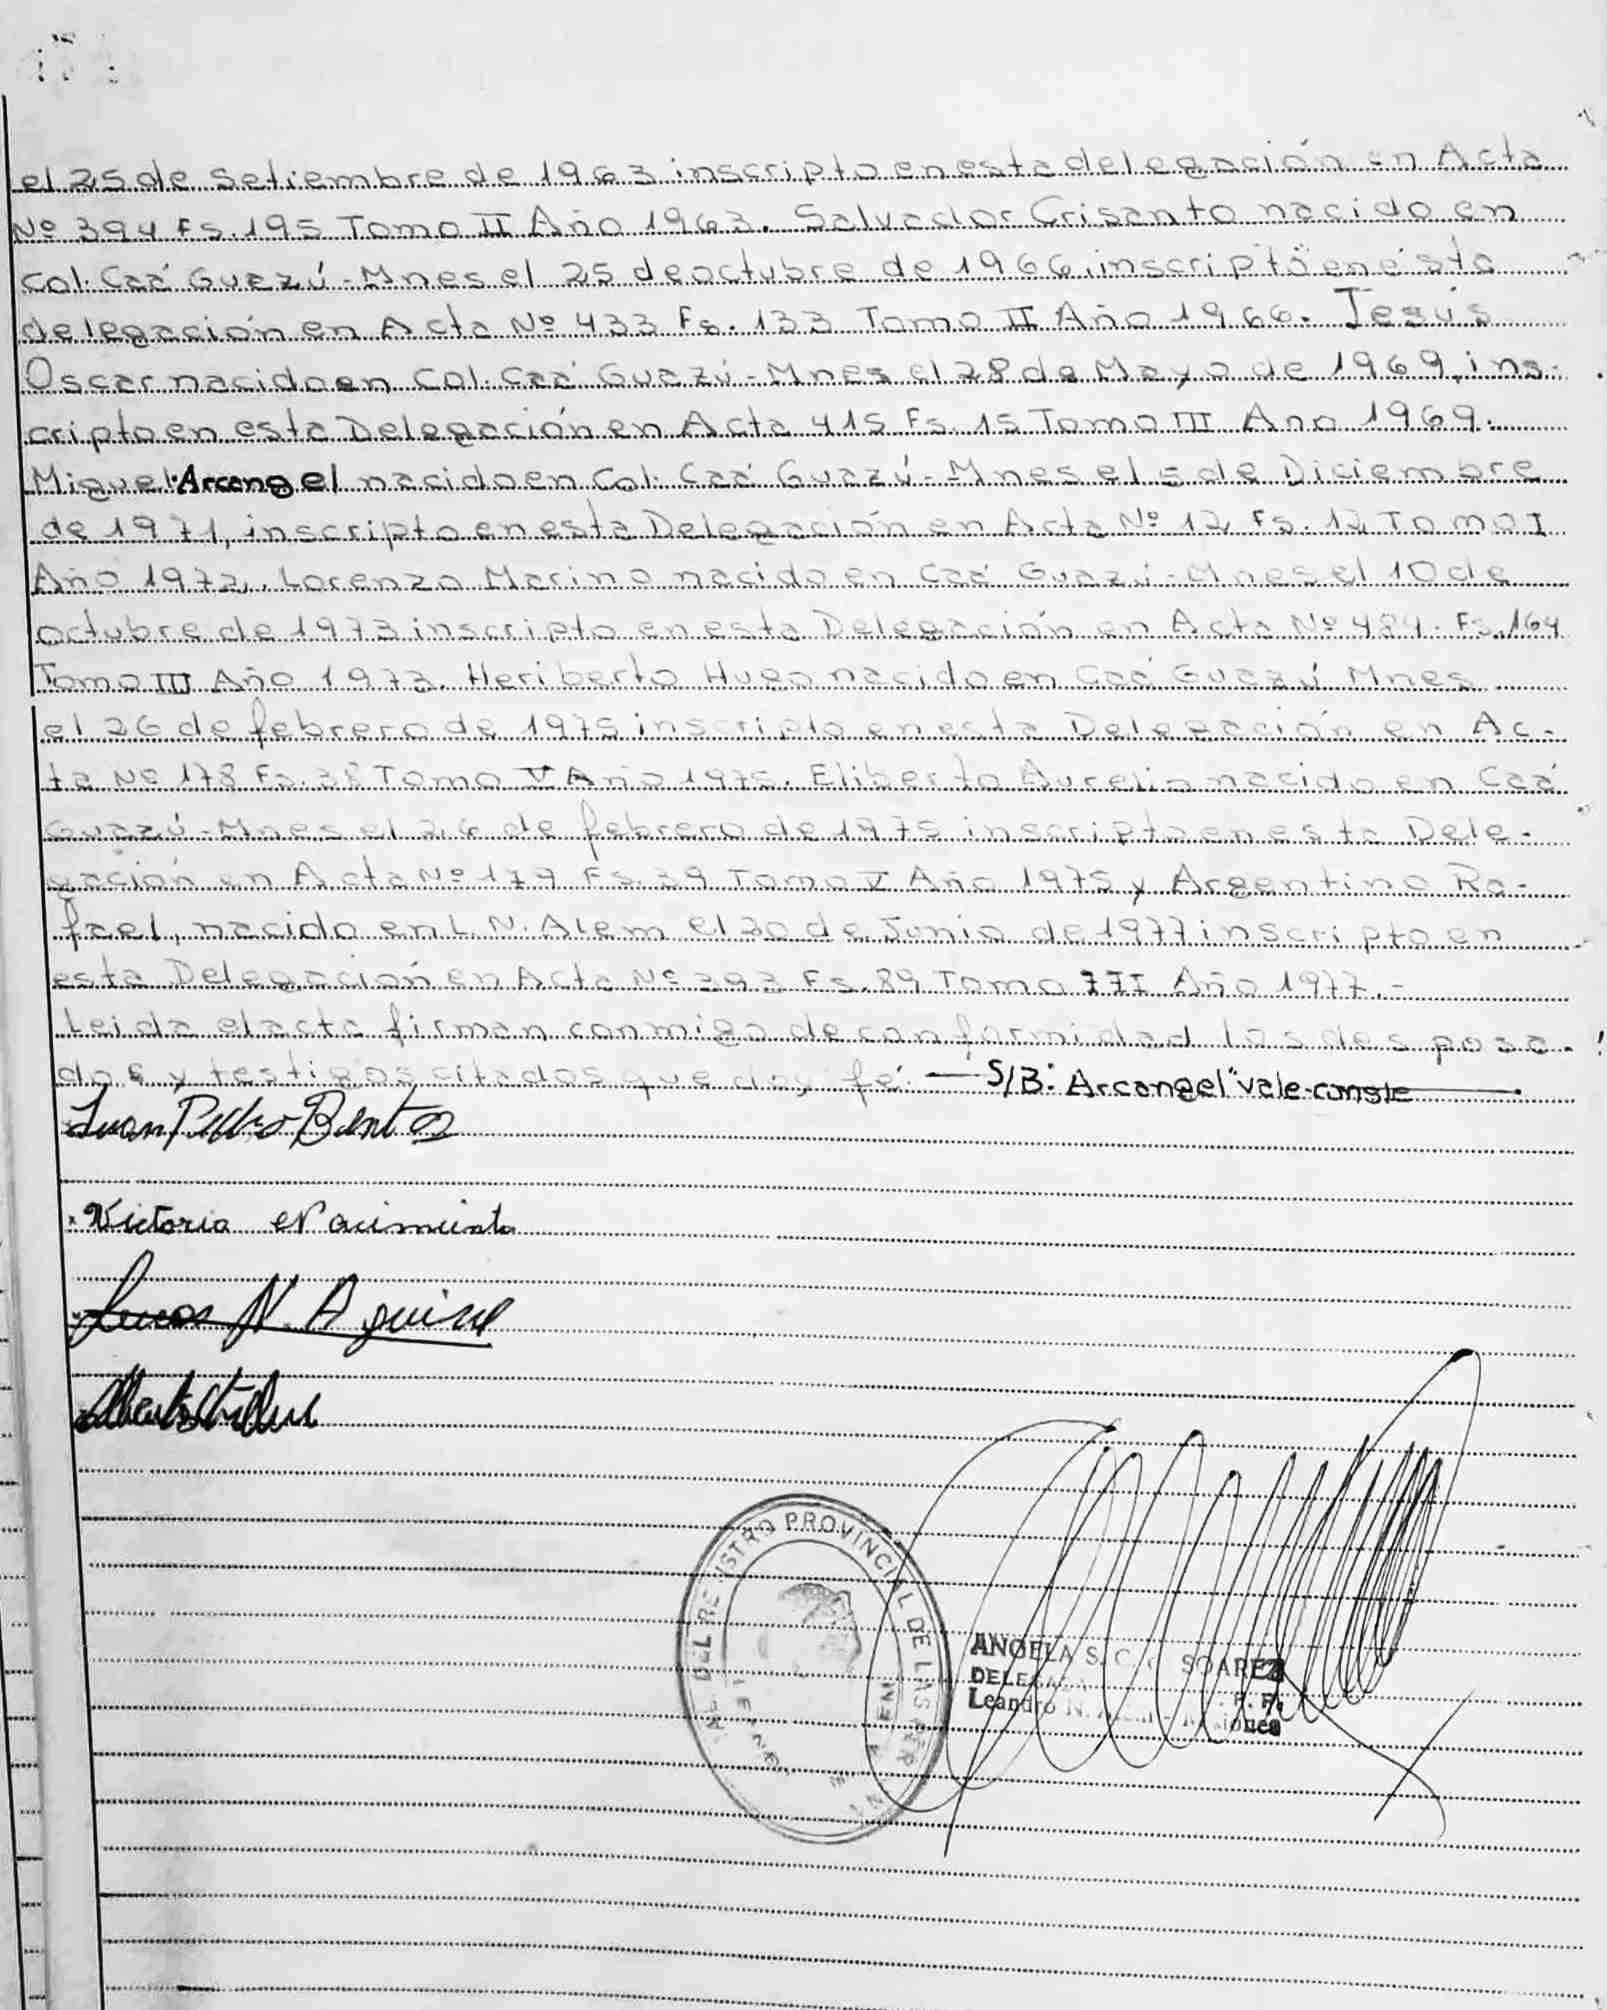 el 25 de setiembre de 1963 inscripto en esta delegación en Acta
Nº 394 Fs. 195 Tomo II Año 1963. Salvador Crisanto nacido en
Col. Caá Guazú - Mnes el 25 de octubre de 1966, inscripto en ésta
delegación en Acta Nº 433 Fs. 133 Tomo II Año 1966. Jesús
Oscar nacido en Col. Caá Guazú - Mnes el 28 de Mayo de 1969, ins-
cripto en esta Delegación en Acta 415 Fs. 15 Tomo III Ano 1969.
Miguel Arcangel nacido en Col. Caá Guazú - Mnes el 5 de Diciembre
de 1971, inscripto en esta Delegación en Acta Nº 12 Fs. 12 Tomo I
Año 1972. Lorenzo Marino nacido en Caá Guazú - Mnes el 10 de
octubre de 1973 inscripto en esta Delegación en Acta Nº 484. Fs. 164
Tomo III Año 1973. Heriberto Hugo nacido en Caá Guazú Mnes
el 26 de febrero de 1975 inscripto en esta Delegación en Ac-
ta Nº 178 Fs. 38 Tomo V Año 1975. Eliberto Aurelio nacido en Caá
Guazú - Mnes el 26 de febrero de 1975 inscripto en esta Dele-
gación en Acta Nº 179 Fs. 39 Tomo V Año 1975 y Argentino Ra-
fael, nacido en L. N. Alem el 20 de Junio de 1977 inscripto en
esta Delegación en Acta Nº 393 Fs. 89 Tomo III Año 1977.-
Leida el acta firman conmigo de conformidad los desposa-
dos y testigos citados que doy fé. — S/B: Arcangel" vale conste
Juan Pedro Bentos
Victoria Nacimiento
Lucas N. Aguirre
REGISTRO PROVINCIAL DE LAS PER
ANGELA S. C. SOAREZ
Leandro N.